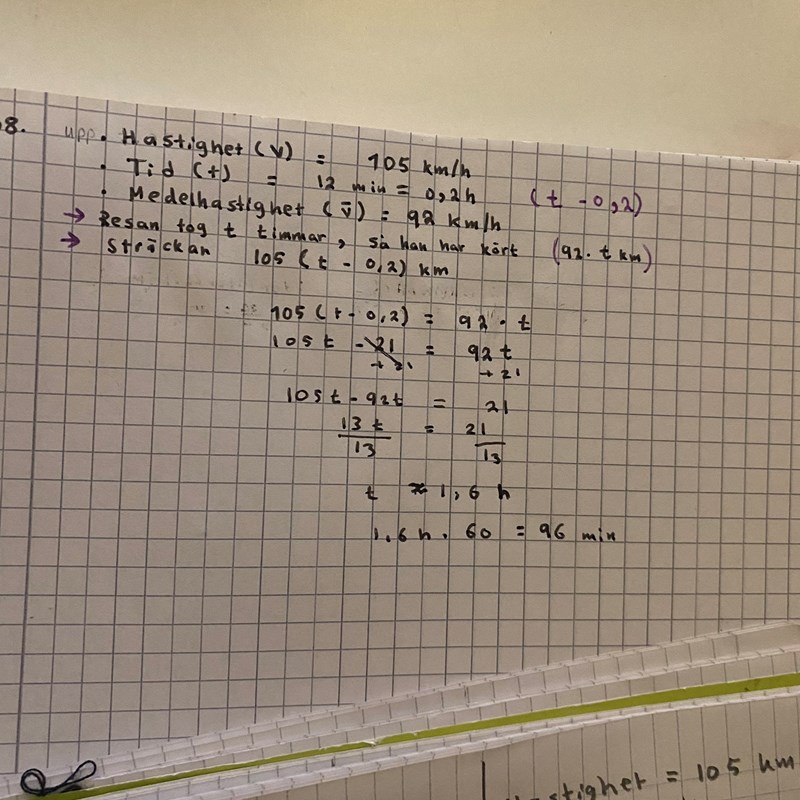 8. upp. • Hastighet (v) = 105 km/h
• Tid (t) = 12 min = 0,2h (t - 0,2)
• Medelhastighet (v̄) = 92 km/h
→ Resan tog t timmar, så han har kört (92. t km)
→ Sträckan 105 (t - 0,2) km
105 (t - 0,2) = 92 · t
105 t - 21 = 92 t
+ 21 + 21
105t - 92t = 21
13 t = 21
13 13
t ≈ 1,6 h
1,6 h. 60 = 96 min
= 105 km